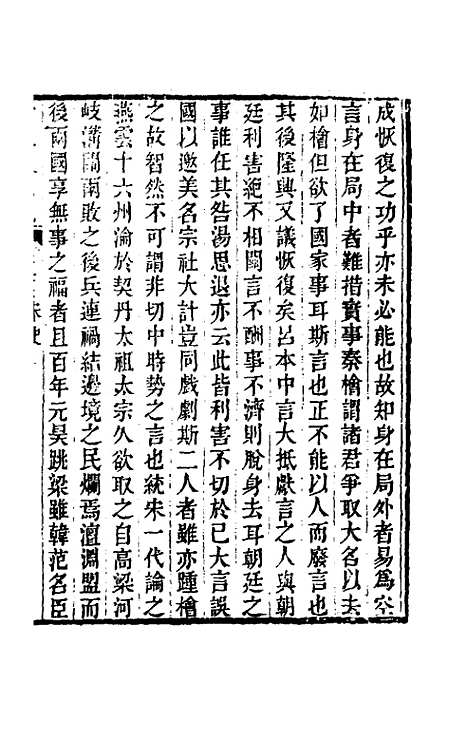 成恢復之功乎亦未必能也故知身在局外者易為空
言身在局中者難措實事秦檜謂諸君爭取大名以去
如檜但欲了國家事耳斯言也正不能以人而廢言也
其後隆興又議恢復矣呂本中言大抵獻言之人與朝
廷利害絶不相關言不酬事不濟則脫身去耳朝廷之
事誰任其咎湯思退亦云此皆利害不切於已大言誤
國以邀美名宗社大計豈同戲劇斯二人者雖亦踵檜
之故智然不可謂非切中時勢之言也統宋一代論之
燕雲十六州淪於契丹太祖太宗久欲取之自高梁河
岐溝關兩敗之後兵連禍結邊境之民爛焉澶淵盟而
後兩國享無事之福者且百年元昊跳梁雖韓范名臣